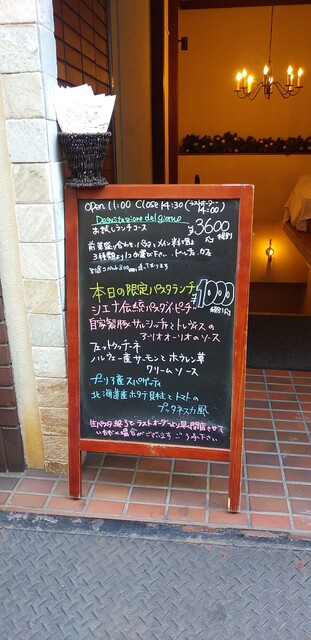 open 11:00 Close 14:30 (ラストオーダー 14:00)
Degustazione del giorno
お試しランチコース ¥3600
前菜盛り合わせ、パスタ、メイン料理は
3種類より1つお選び下さい。ドルチェ、カフェ
本日の限定パスタランチ ¥1000
シエナ伝統パスタ"ピーチ"
自家製豚サルシッチャとトレヴィスの
アーリオオーリオのソース
フェットゥッチーネ
ノルウェー産サーモンとホウレン草
クリームソース
プーリア産スパゲッティ
北海道産ホタテ貝柱とトマトの
プッタネスカ風